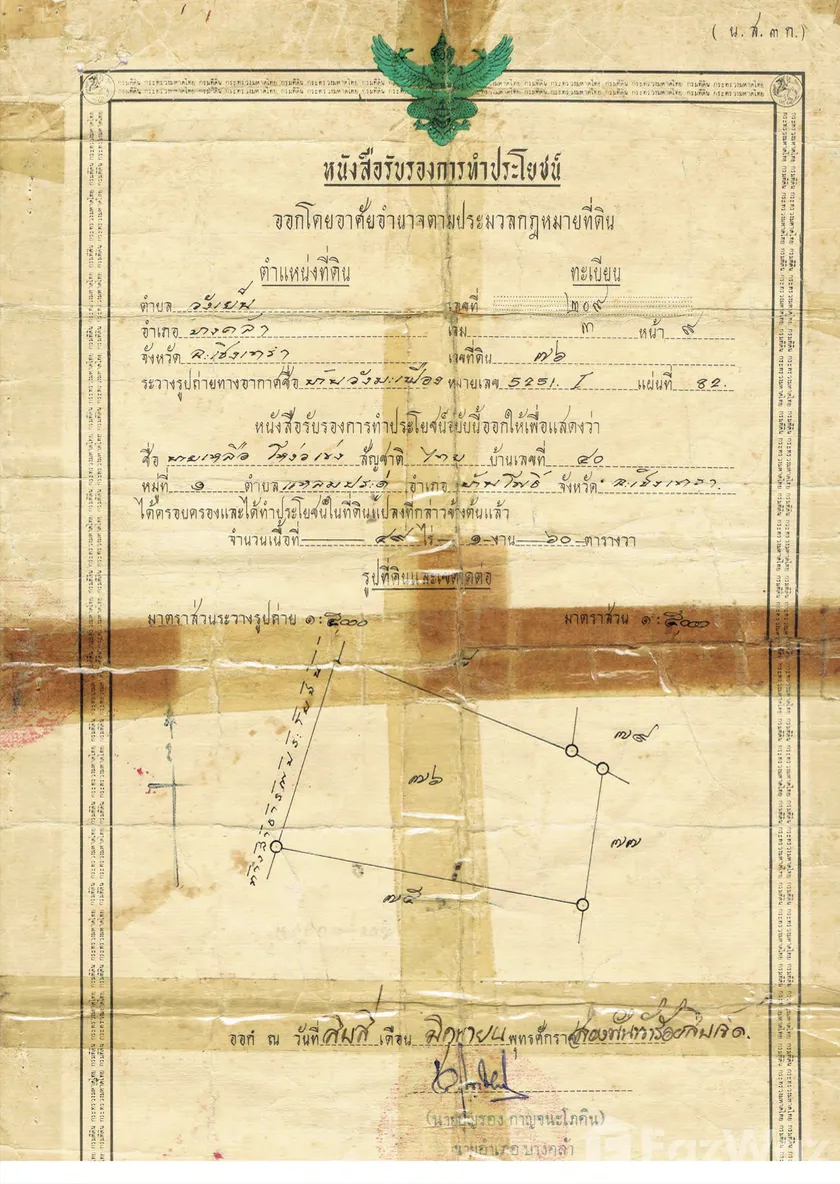 (น.ส.๓ ก.)
หนังสือรับรองการทำประโยชน์
ออกโดยอาศัยอำนาจตามประมวลกฎหมายที่ดิน
ตำแหน่งที่ดิน ทะเบียน
ตำบล วังเย็น เลขที่ ๒๐๙
อำเภอ บางคล้า เล่ม ๓ หน้า ๙
จังหวัด ฉะเชิงเทรา เลขที่ดิน ๗๖
ระวางรูปถ่ายทางอากาศชื่อ บ้านวังมะเฟือง หมายเลข 5251 I แผ่นที่ 82.
หนังสือรับรองการทำประโยชน์ฉบับนี้ออกให้เพื่อแสดงว่า
ชื่อ นายเหลือ สัญชาติ ไทย บ้านเลขที่ ๔๐
หมู่ที่ ๑ ตำบล แหลมประดู่ อำเภอ บ้านโพธิ์ จังหวัด ฉะเชิงเทรา.
ได้ครอบครองและได้ทำประโยชน์ในที่ดินแปลงที่กล่าวข้างต้นแล้ว
จำนวนเนื้อที่ ๔๙ ไร่ ๑ งาน ๖๐ ตารางวา
รูปที่ดินและเขตติดต่อ
มาตราส่วนระวางรูปถ่าย ๑:๕๐๐๐ มาตราส่วน ๑:๕๐๐๐
ทางสาธารณประโยชน์
๗๙
๗๖
๗๗
๗๕
ออก ณ วันที่ สิบสี่ เดือน มิถุนายน พุทธศักราช สองพันห้าร้อยสิบเจ็ด.
(นายบุญรอง กาญจนะโภคิน)
นายอำเภอ บางคล้า
FazWaz